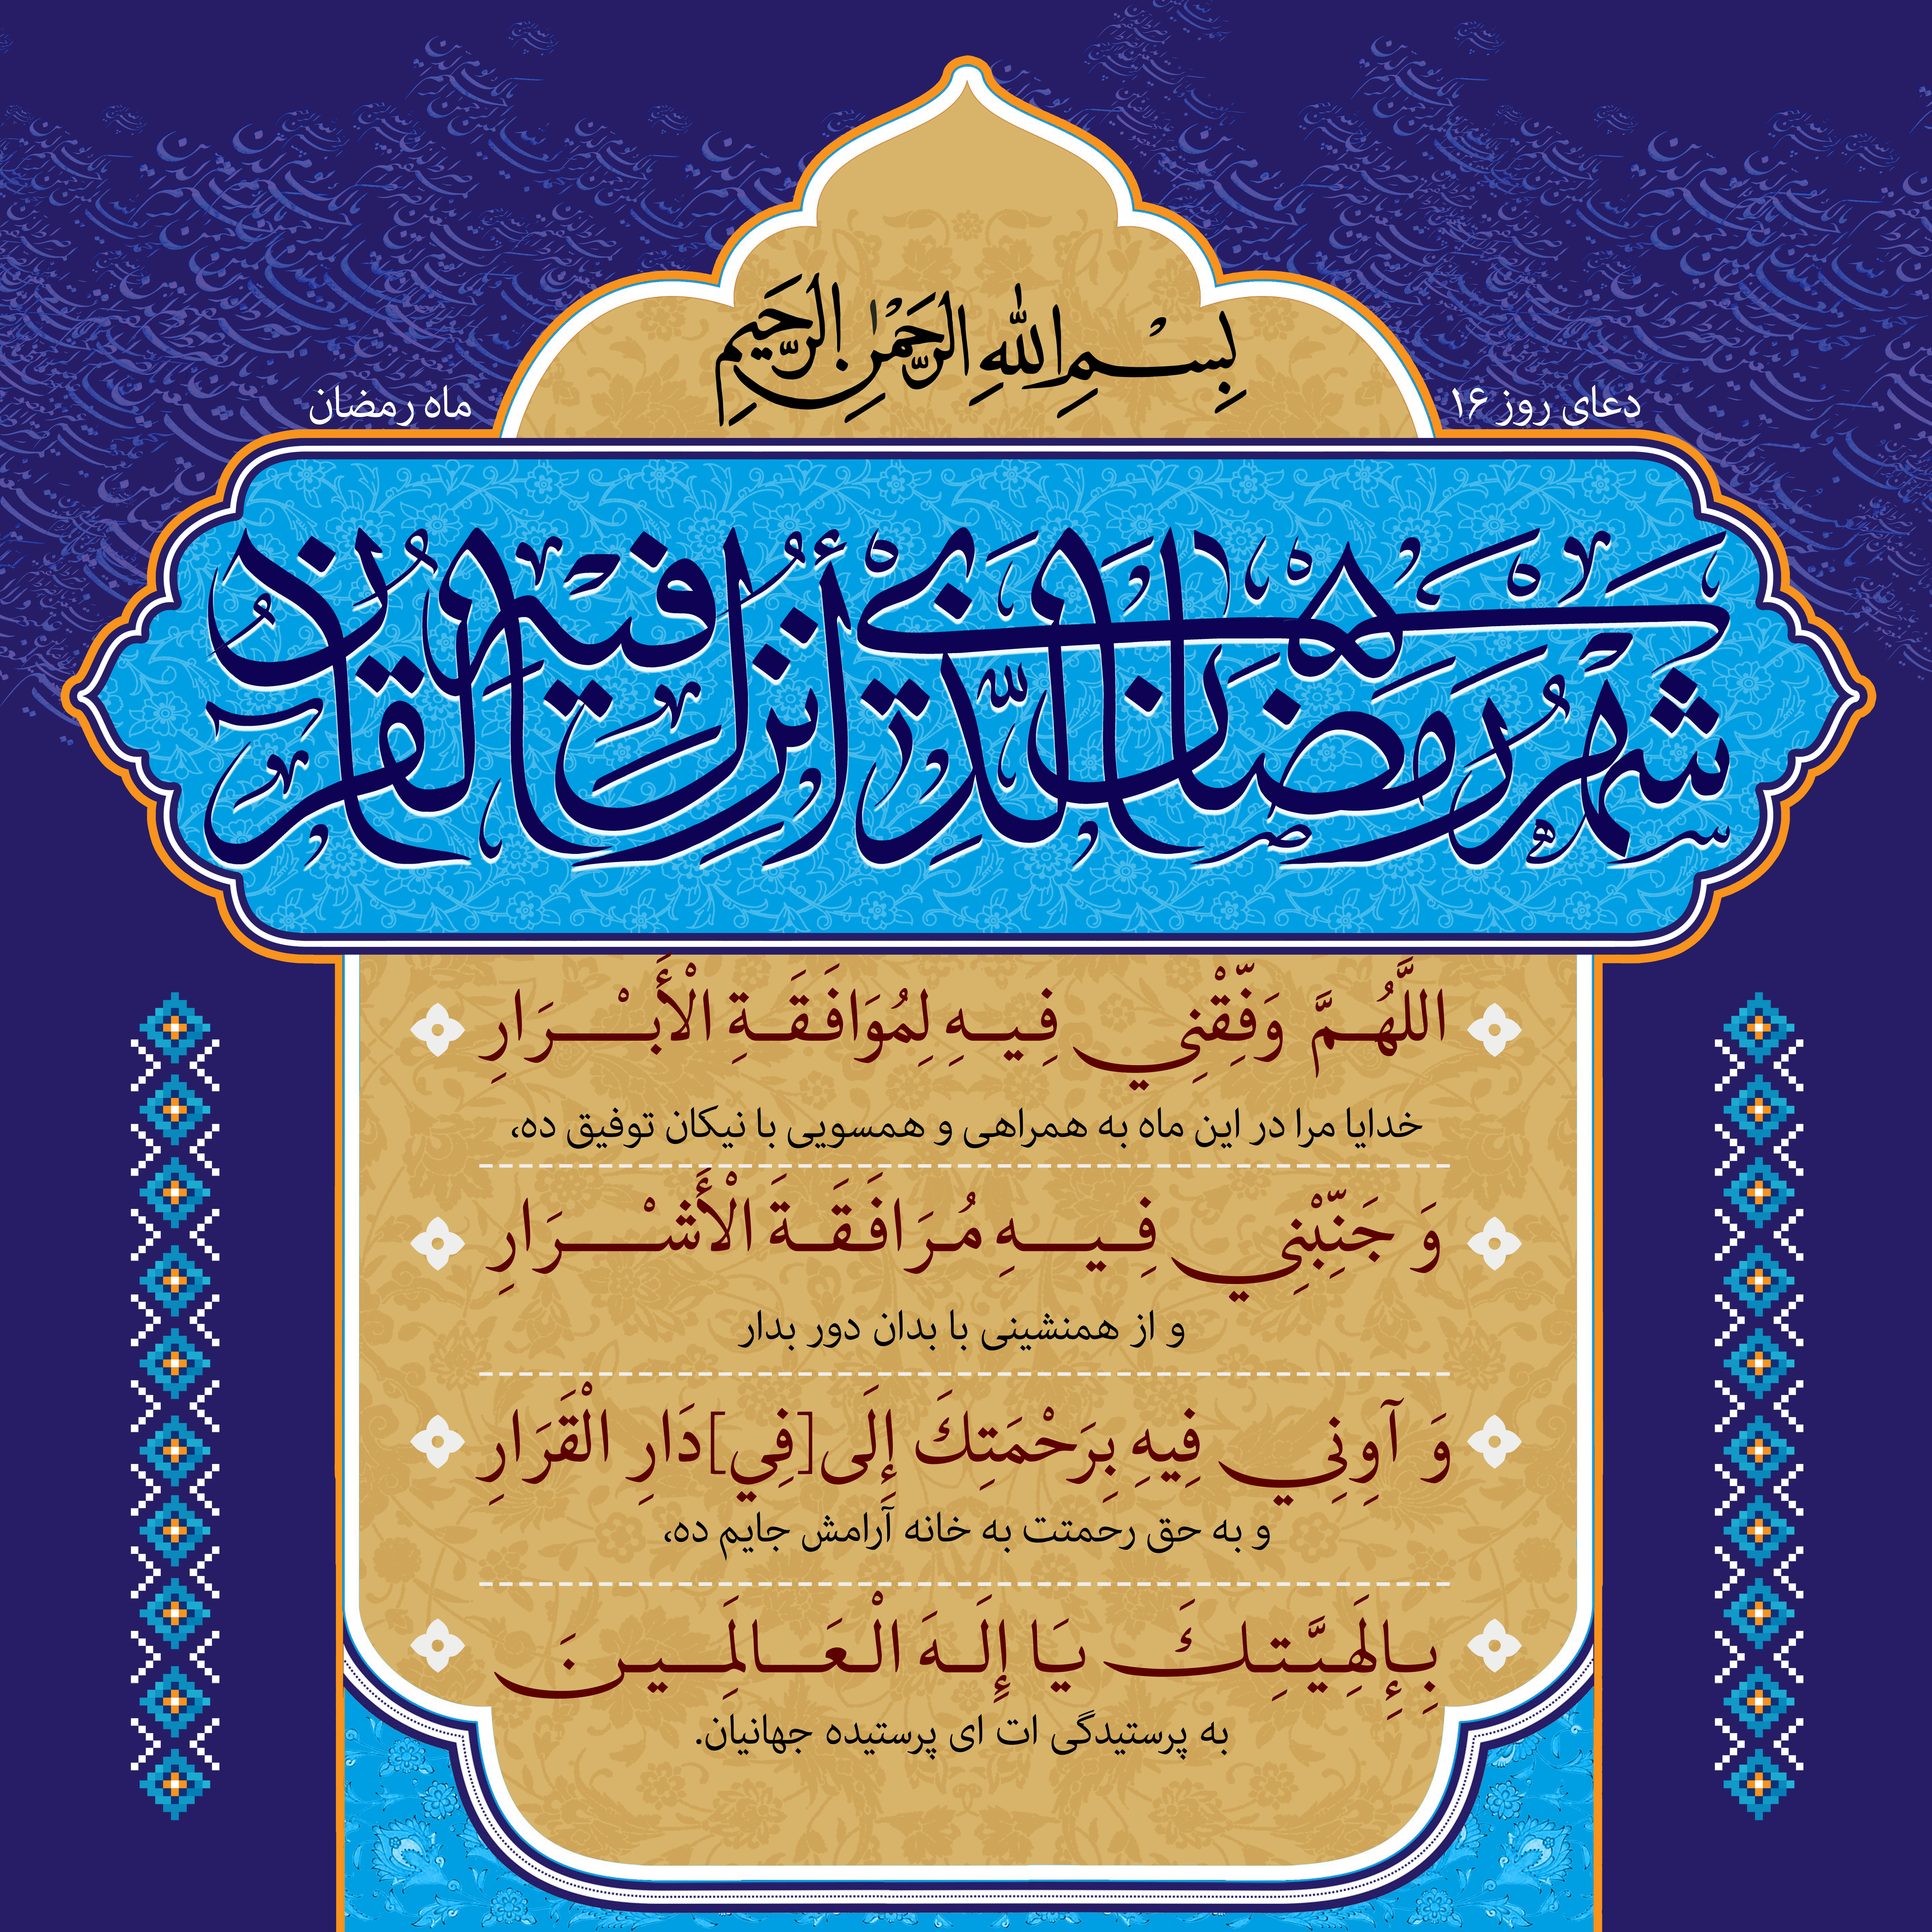 بِسْمِ اللَّهِ الرَّحْمَٰنِ الرَّحِيمِ
دعای روز ۱۶
ماه رمضان
شهر رمضان الذی أنزل فیه القرآن
اللَّهُمَّ وَفِّقْنِي فِيهِ لِمُوَافَقَةِ الْأَبْرَارِ
خدایا مرا در این ماه به همراهی و همسویی با نیکان توفیق ده،
وَ جَنِّبْنِي فِيهِ مُرَافَقَةَ الْأَشْرَارِ
و از همنشینی با بدان دور بدار
وَ آوِنِي فِيهِ بِرَحْمَتِكَ إِلَى[فِي]دَارِ الْقَرَارِ
و به حق رحمتت به خانه آرامش جایم ده،
بِإِلَهِيَّتِكَ يَا إِلَهَ الْعَالَمِينَ
به پرستیدگی ات ای پرستیده جهانیان.